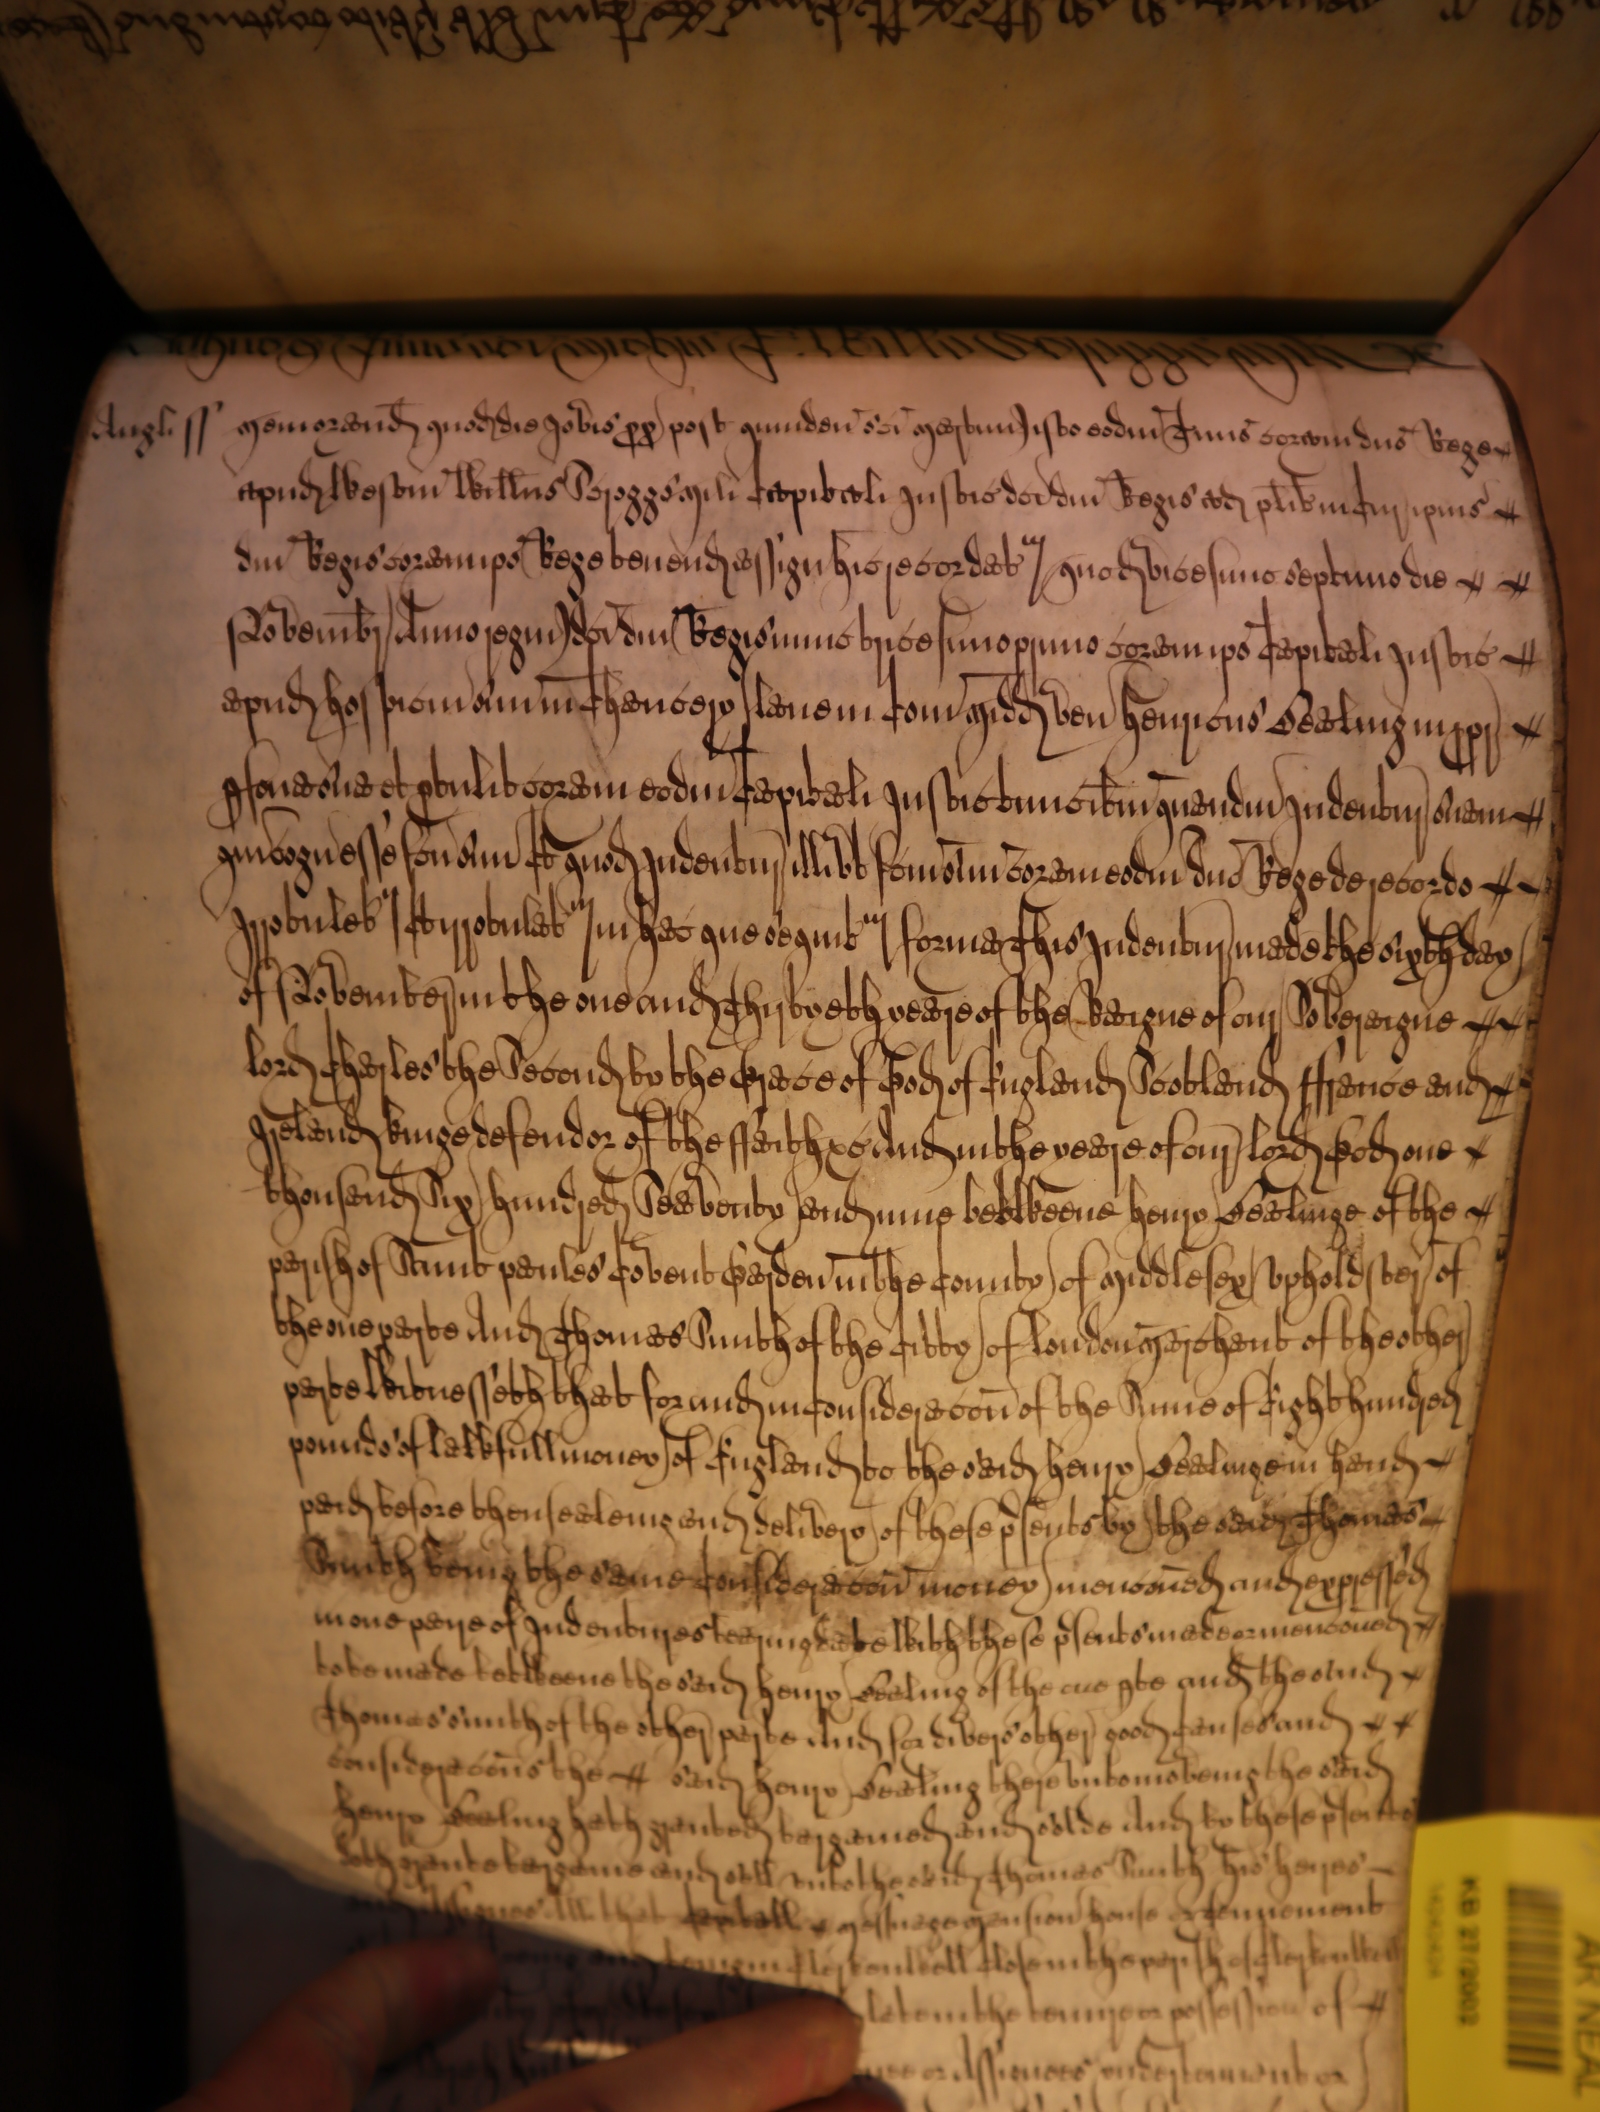 Angl ss Memorand quod die Jovis px post quinden sci Martini isto eodm Tmino coram dno Rege
apud Westm Willms Scroggs Mil Capitali Justic dci dni Regis ad plita in Cur ipius
dni Regis coram ipo Rege tenend assign hic recordatr quod vicesimo septimo die
Novembr Anno regni dci dni Regis nunc tricesimo primo coram ipo Capitali Justic
apud hospicium suum in Chancery lane in Com Midd ven Henricus Sealing in ppr
psona sua et ptulit coram eodm Capitali Justic tunc ibm quandm Indentur suam
quam cogn esse fcm suum Et quod Indentur ill ibt fcm suum coram eodm dno Rege de recordo
Irrotuletr Et irrotulatr in hac que sequitr forma This Indenture made the sixth day
of November in the one and Thirtyeth yeare of the Raigne of our Soveraigne
lord Charles the Second by the Grace of God of England Scotland ffrance and
Ireland kinge defendor of the ffaith &c And in the yeare of our lord God one
thousand Six hundred Seaventy and nine betweene Henry Sealinge of the
parish of Saint paules Covent Garden in the County of Middlesex Upholdster of
the one parte And Thomas Smith of the Citty of london Marchant of the other
parte Witnesseth that for and in Consideracon of the Sume of Eight hundred
pounds of lawfull money of England to the said Henry Sealinge in hand
paid before thensealeing and delivery of these psents by the said Thomas
Smith being the same Consideracon money menconed and expressed
in one paire of Indentures bearing date with these psents made or menconed
to be made betweene the said Henry Sealing of the one pte and the said
Thomas Smith of the other parte And for divers other good Causes and
consideracons the said Henry Sealing thereunto moveing the said
Henry Sealing hath granted bargained and solde And by these psentes
doth grante bargaine and sell unto the said Thomas Smith his heires
and Assignes All that Capitall Messuage Mansion house or Tennement
being in Clerkenwell Close in the parish of Clerkenwell
late in the tenure or possession of
or Assignees undertennant or
KB 27/2002
AR NEAL